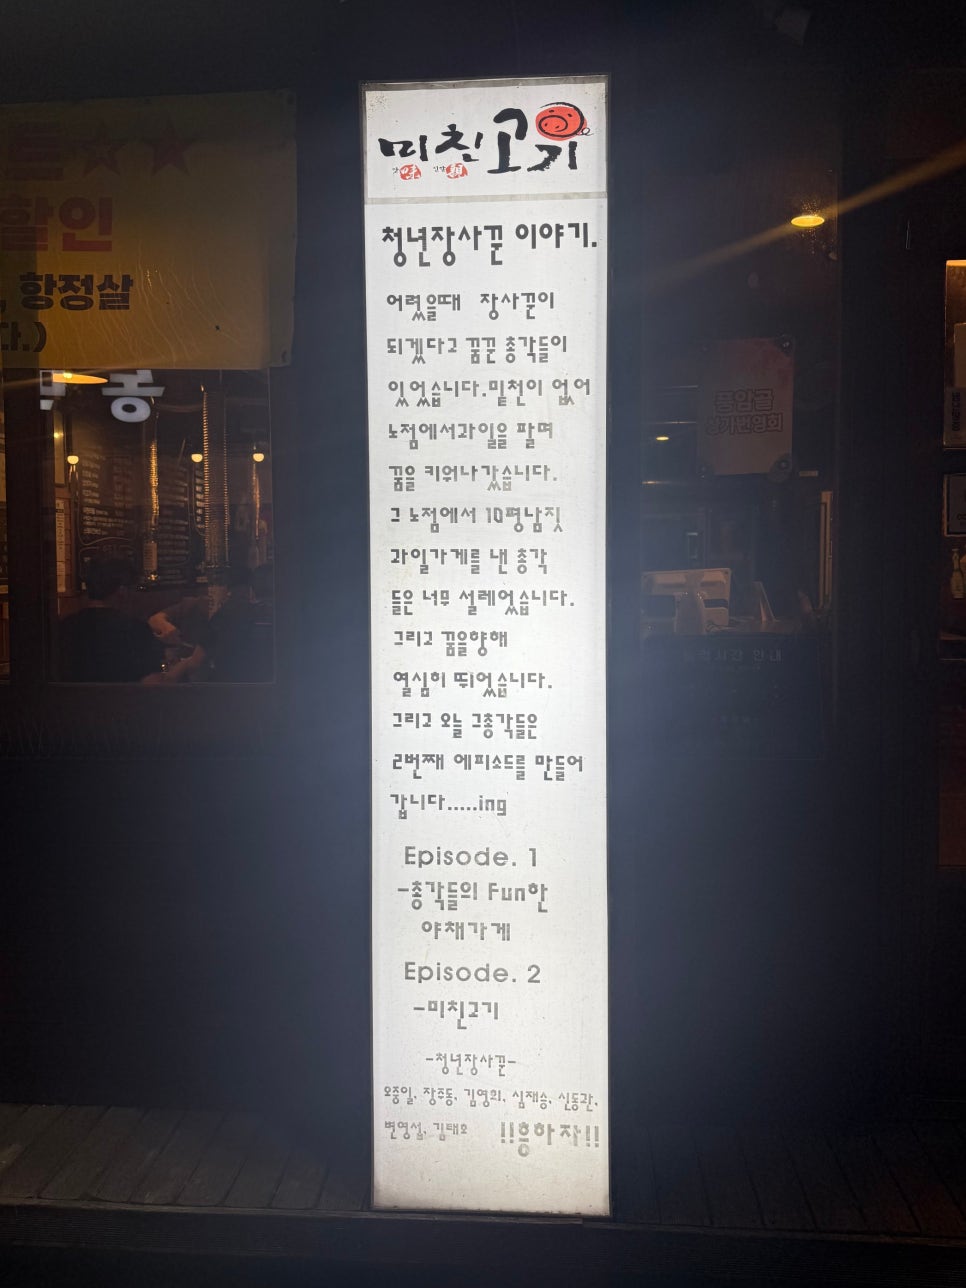 미친고기
味
청년장사꾼 이야기.
어렸을때 장사꾼이
되겠다고 꿈꾼 총각들이
있었습니다.밑천이 없어
노점에서과일을 팔며
꿈을 키워나갔습니다.
그 노점에서 10평남짓
과일가게를 낸 총각
들은 너무 설레었습니다.
그리고 꿈을향해
열심히 뛰었습니다.
그리고 오늘 그총각들은
2번째 에피소드를 만들어
갑니다.....ing
Episode. 1
-총각들의 Fun한
야채가게
Episode. 2
-미친고기
-청년장사꾼-
오중일, 장주동, 김영희, 심재승, 신동관,
변영섭, 김태호 !!흥하자!!
할인
, 항정살
다.)
풍암골
상가번영회